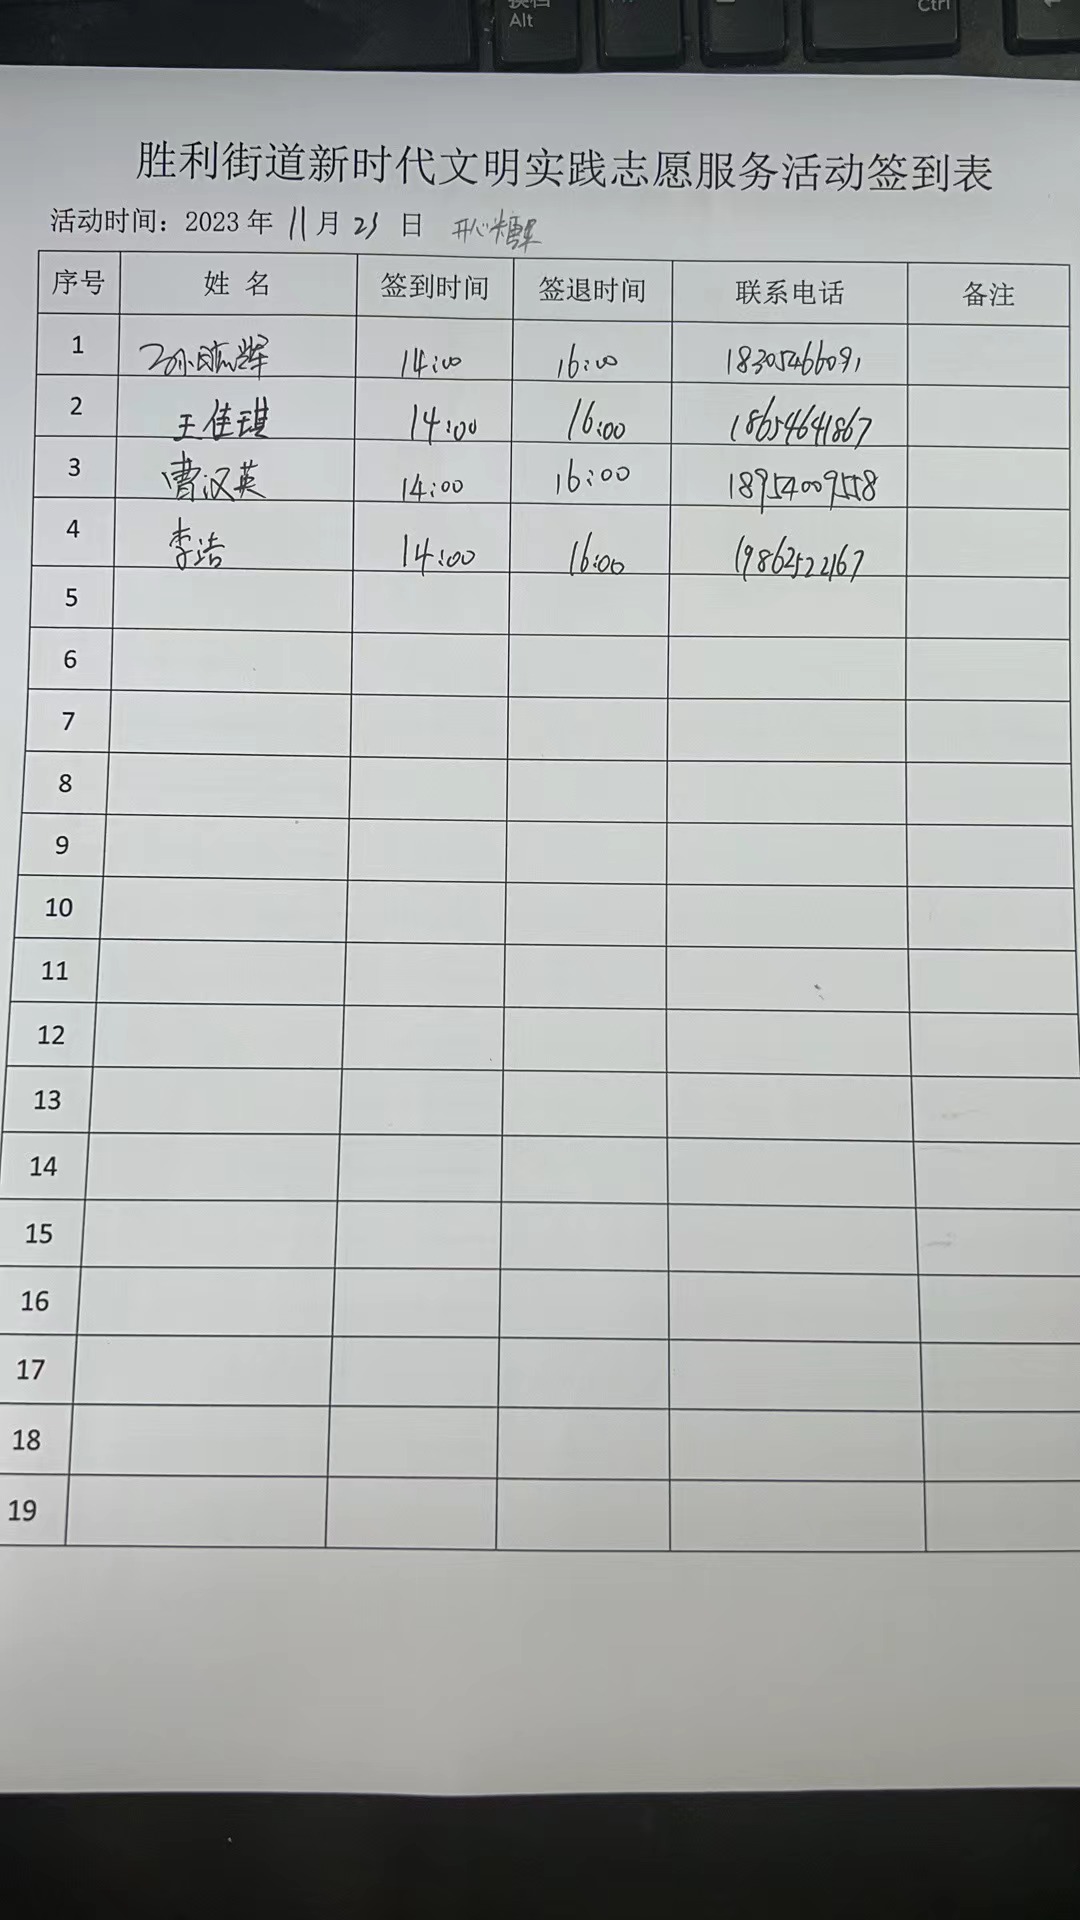 Alt
Ctrl
胜利街道新时代文明实践志愿服务活动签到表
活动时间：2023 年 11 月 23 日 开心糖果
序号 姓 名 签到时间 签退时间 联系电话 备注
1 14:00 16:00 18305466091
2 王佳琪 14:00 16:00 18654641867
3 曹汉英 14:00 16:00 18954009558
4 李浩 14:00 16:00 19862522167
5
6
7
8
9
10
11
12
13
14
15
16
17
18
19